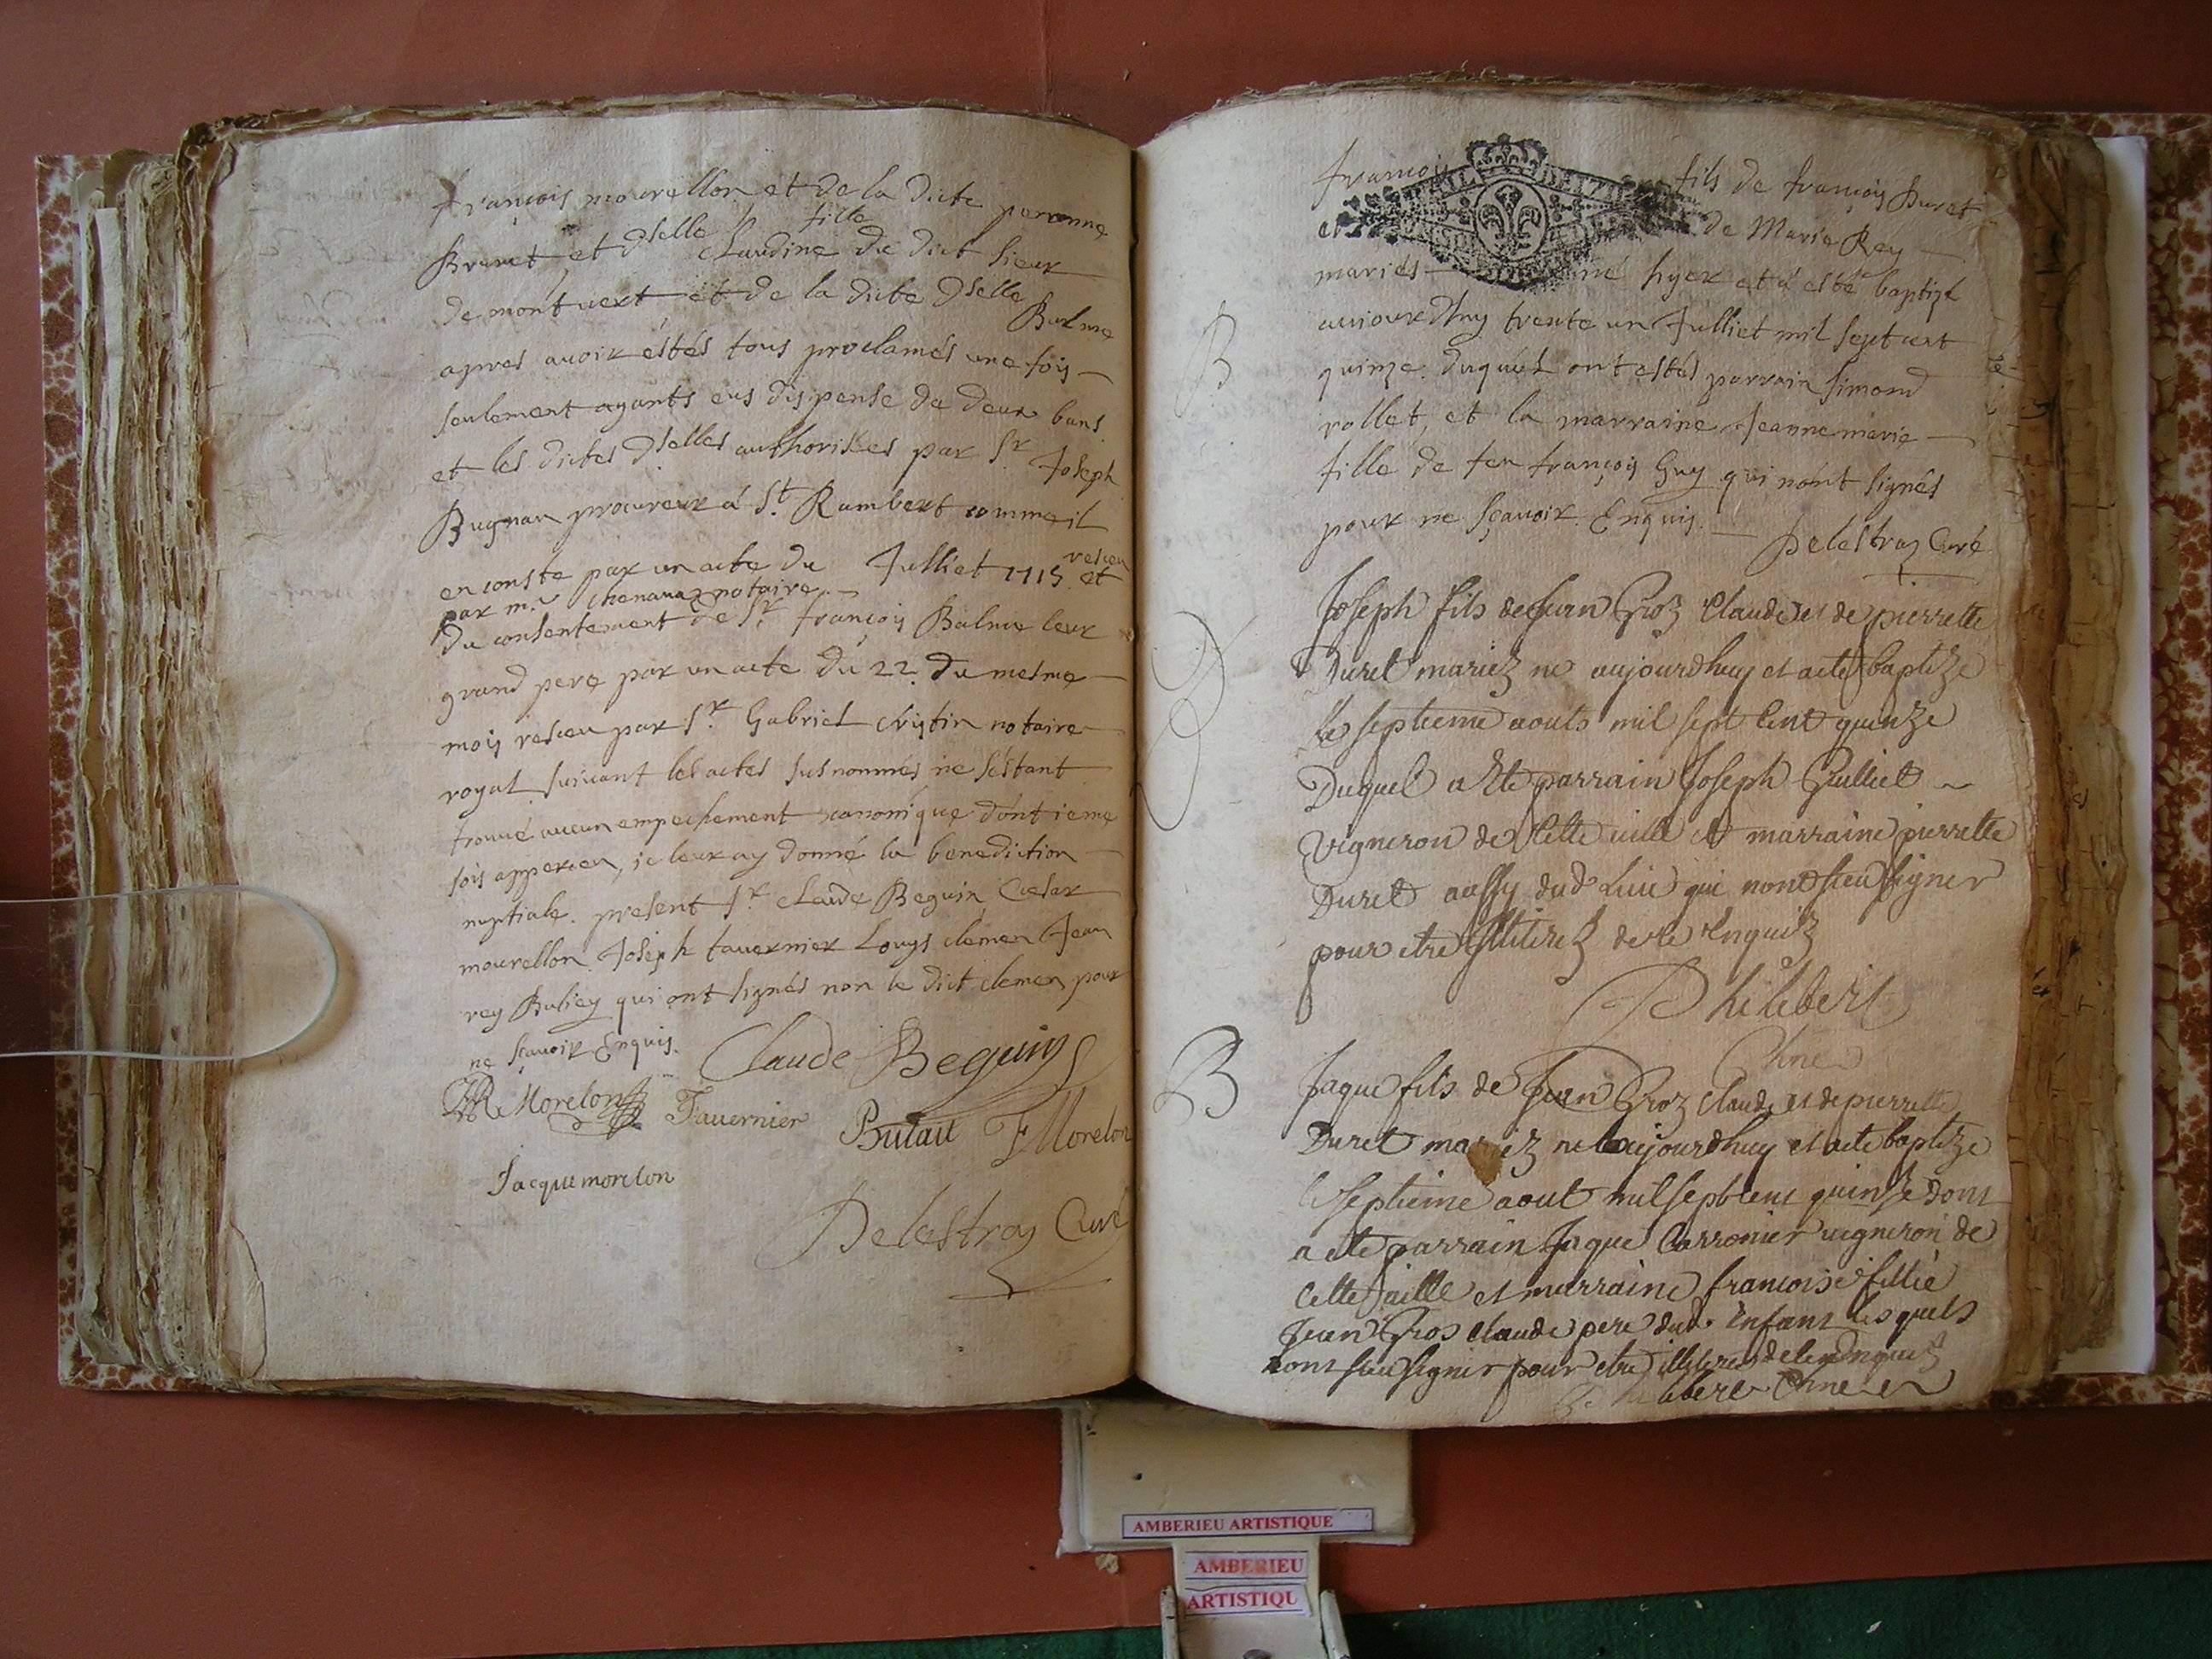 françois mourellon et de la dicte peronne
Brunet, et dselle Claudine fille du dict sieur
de montuert et de la dicte dselle Balme
apres auoir éstés tous proclamés une fois
seulement ayants eus dispense de deux bans
et les dictes dselles authorisées par Sr Joseph
Bugnan procureur à St. Rambert comme il
en conste par un acte du Julliet 1715 receu et
par m.e chenauaz notaire
du consentement de Sr. françois Balme leur
grand pere par un acte du 22. du mesme
mois receu par Sr. Gabriel christin notaire
royal suiuant les actes susnommés ne séstant
trouué aucun empechement canonique dont ie me
sois apperceu, ie leur ay donné la benediction
nuptiale. present Sr claude Beguin Cæsar
mourellon Joseph tauernier Louys clemen Jean
rey Buliey qui ont signés non le dict clemen pour
ne sçauoir Enquis.
Claude Beguin
Morelon Tauernier F Morelon
Jacque morelon
Delestraz Curé
françois fils de françois Duret
et de Marie Rey
mariés né hyer et a esté baptizé
auiourdhuy trente un Julliet mil sept cent
quinze. duquel ont estés parrain simond
rollet, et la marraine Jeanne marie
fille de feu françois Guy qui nont signés
pour ne sçauoir. Enquis.
Delestraz Curé
B
Joseph fils de Jean Groz Claude et de pierrette
Duret mariez ne aujourdhuy et a ete baptize
le septieme aouts mil sept cent quinze
Duquel a Ete parrain Joseph Guilliet
Vigneron de Cette uille et marraine pierrette
Duret aussy dud Lieu qui nont sceu signer
pour etre illiterez de ce Enquiz
Philibert
B
Jaque fils de Jean Groz Claude et de pierrette
Duret mariez ne aujourdhuy et a ete baptize
le septieme aout mil sept cens quinze dont
a ete parrain Jaque Carronier uigneron de
Cette uille et marraine francoise fillie
Jean Gros claude pere dud. Enfant lesquels
nont sceu signer pour etre illiterez de ce enquiz
Philibert
AMBERIEU ARTISTIQUE
AMBERIEU
ARTISTIQU